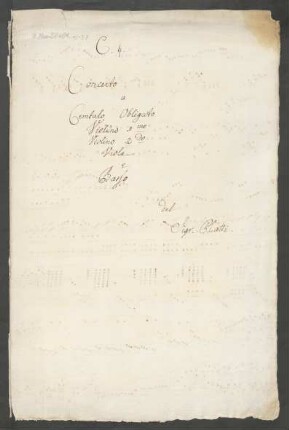 C. 4
Concerto
a
Cembalo Obligato
Violino 1 mo
Violino 2 do
Viola
e
Basso
del
Sigr.